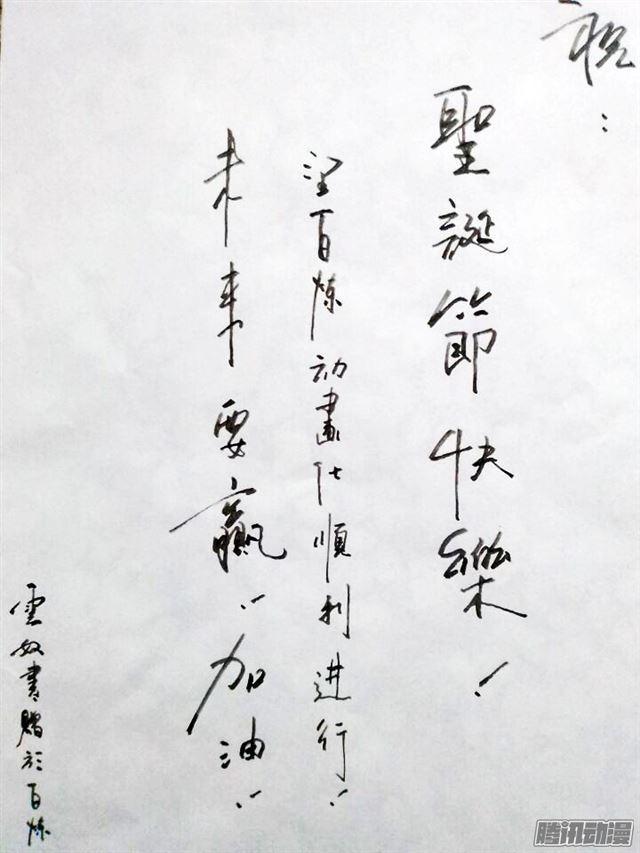 祝：
聖誕節快樂！
望百炼动畫化順利进行！
未来要赢！加油！
雲奴書贈於百炼
腾讯动漫